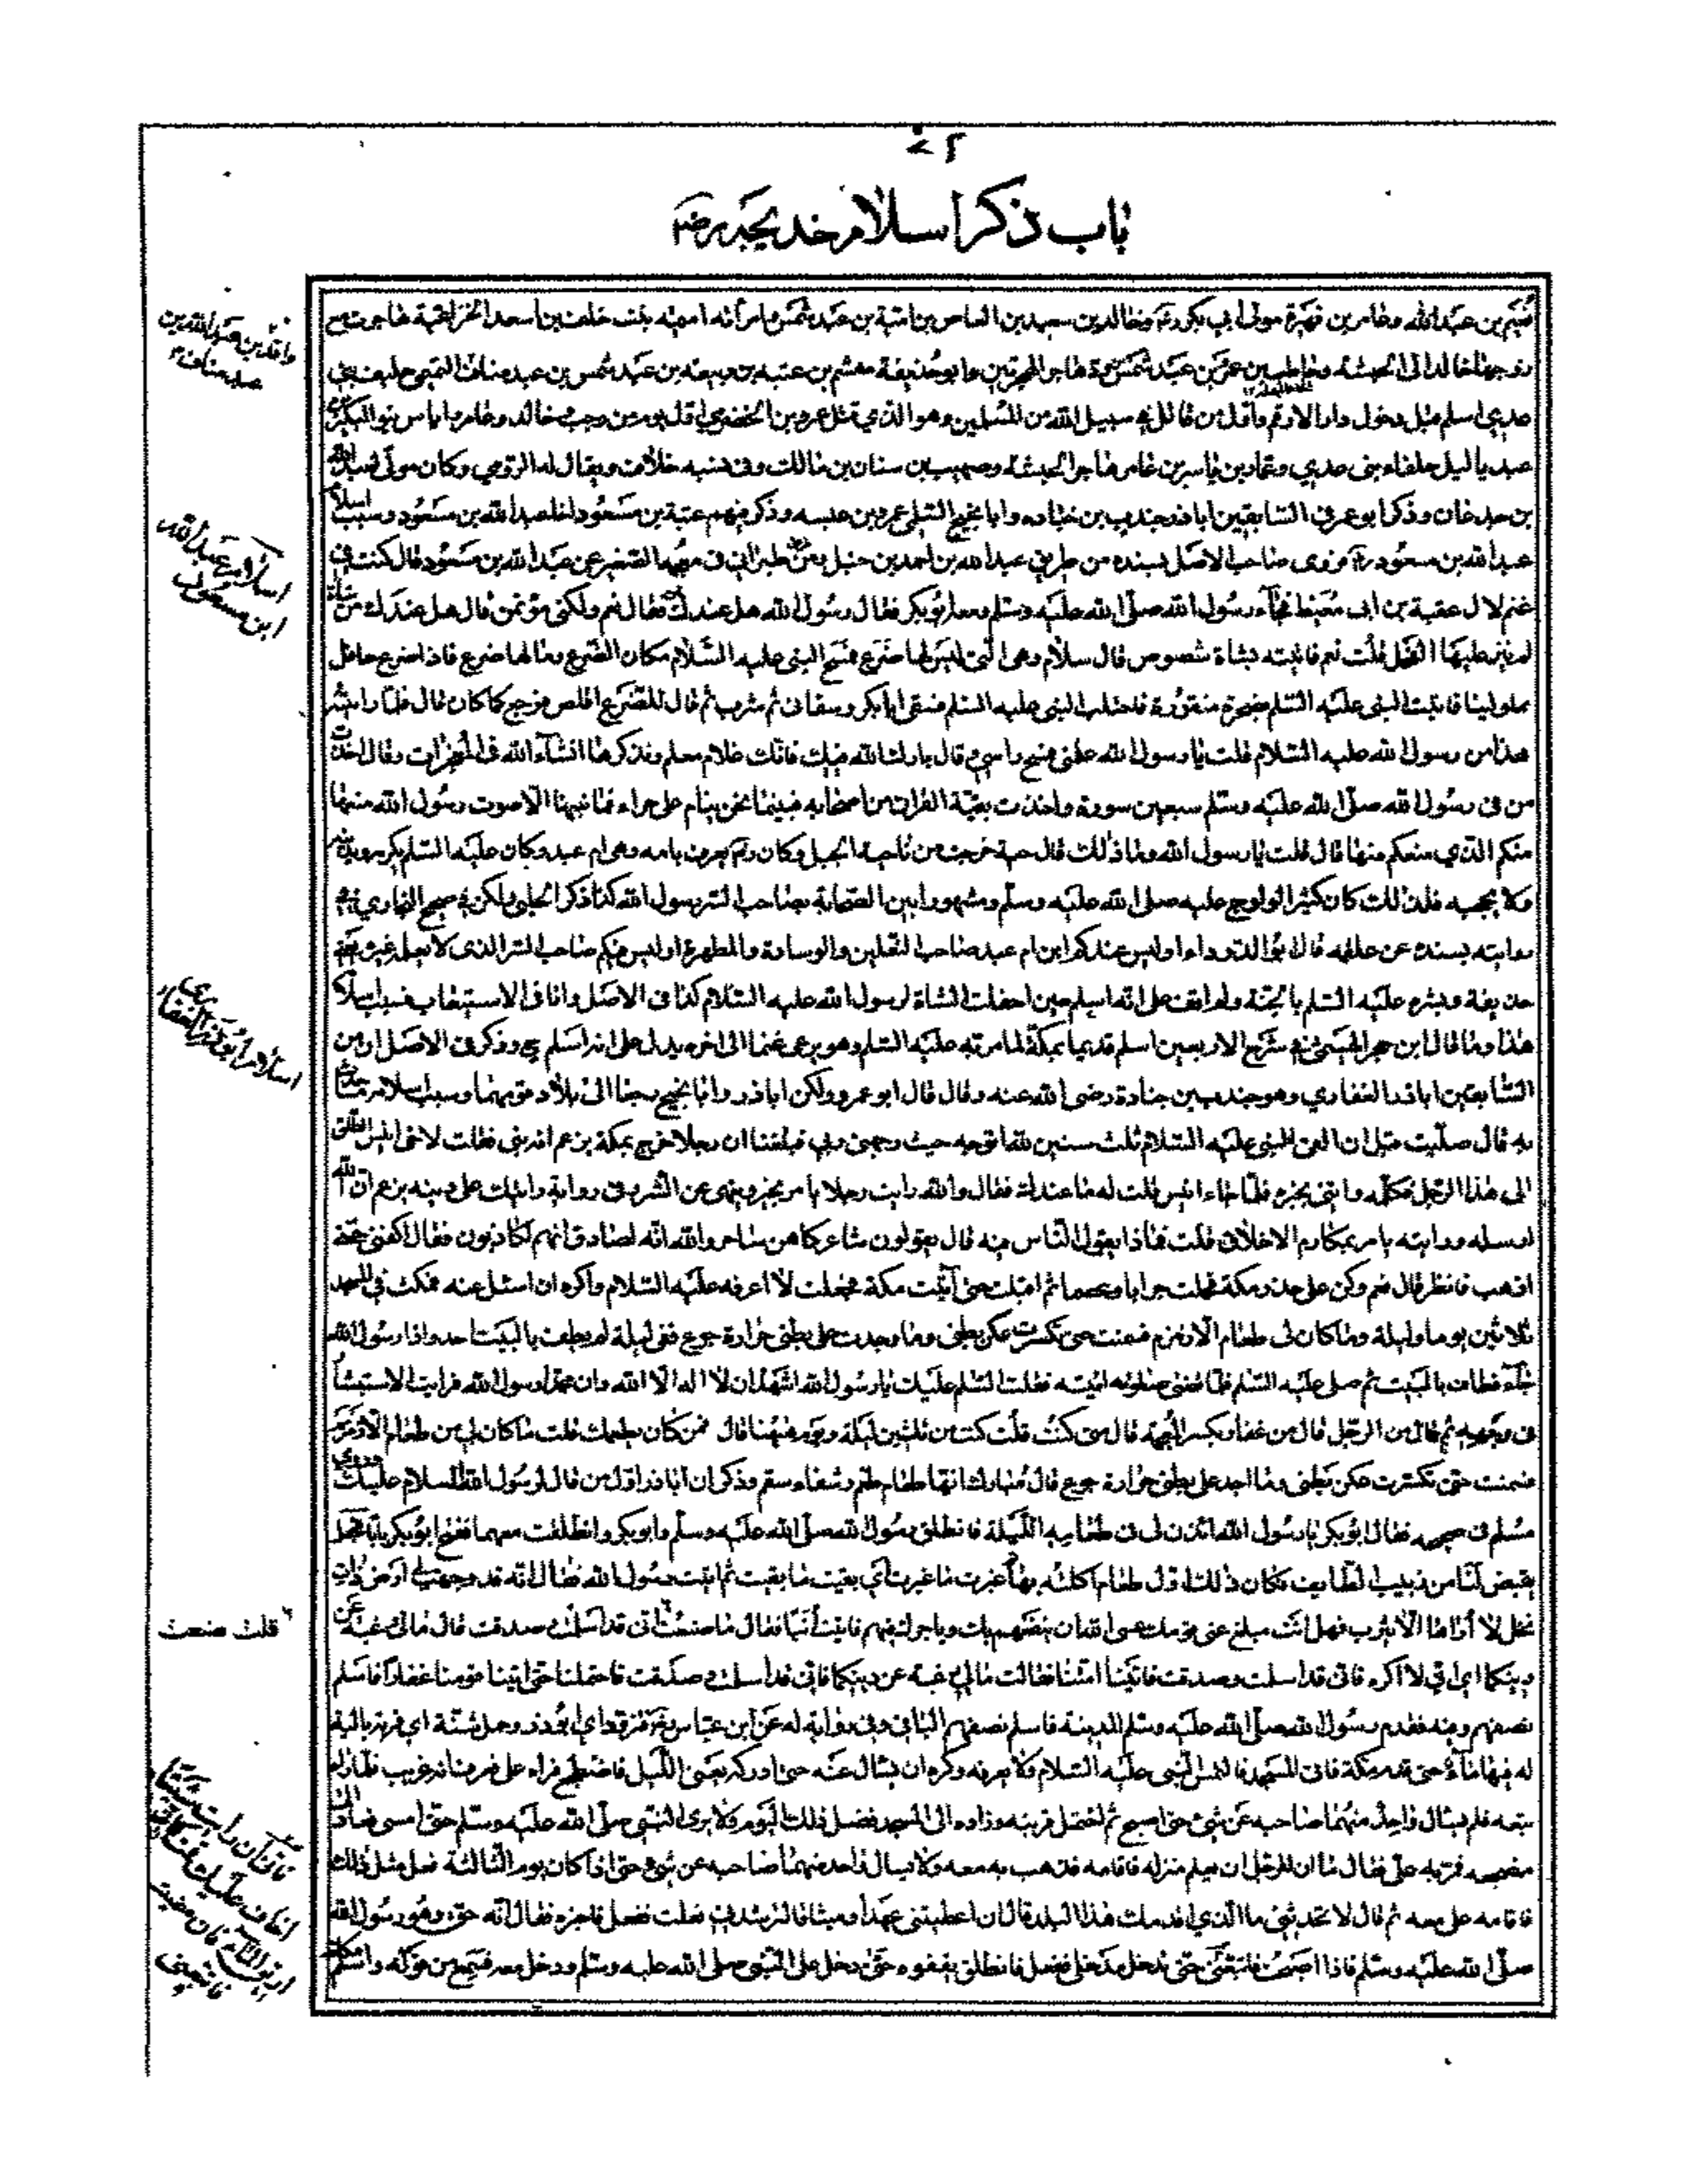 باب ذكر اسلام خديجة رض
نعيم بن عبد الله وعامر بن فهيرة مولى ابي بكر وخالد بن سعيد بن العاص بن امية بن عبد شمس وامرأته امينه بنت خلف بن اسعد الخزاعية هاجرت مع
زوجها خالد الى الحبشه وحاطب بن عمرو بن عبد شمس هاجر الهجرتين وابو حذيفة مهشم بن عتبه بن ربيعه بن عبد شمس بن عبد مناف التميمي حليف بني
عدي اسلم قبل دخول دار الارقم واول من قاتل في سبيل الله من المسلمين وهو الذي قتل عمرو بن الحضرمي اول يوم من رجب خالد وعامر اياس بنو البكير
عبد ياليل حلفاء بنى عدي وعمار بن ياسر بن عامر هاجر الحبشه وصهيب بن سنان بن مالك وفى نسبه خلاف ويقال له الرومي وكان مولى عبد الله
بن جدعان وذكر ابو عمر فى السابقين اباذر جندب بن جناده وابا نجيح السلمى عمرو بن عبسه وذكر فيهم عتبة بن مسعود اخا عبد الله بن مسعود وسبب اسلام
عبد الله بن مسعود روى صاحب الاصل بسنده من طريق عبد الله بن احمد بن حنبل طبرانى فى معجمه الصغير عن عبد الله بن مسعود قال كنت فى
غنم لال عقبة بن ابى معيط فجاء رسول الله صلى الله عليه وسلم ومعه ابو بكر فقال رسول الله هل عندك لبن فقال نعم ولكنى مؤتمن قال هل عندك من شاة
لم ينز عليها الفحل قلت نعم فاتيته بشاة شصوص قال سلام وهى التى ليس لها ضرع فمسح النبى عليه السلام مكان الضرع ومالها ضرع فاذا ضرع حافل
مملو لبنا فاتيت النبى عليه السلم بصخرة منقورة فاحتلب النبى عليه السلم فسقى ابا بكر وسقانى ثم شرب ثم قال للضرع اقلص فرجع كما كان قال فلما رايت
هذا من رسول الله عليه السلام قلت يا رسول الله علمنى فمسح راسى وقال بارك الله فيك فانك غلام معلم ونذكرها انشاء الله فى المعجزات وقال اخذت
من فى رسول الله صلى الله عليه وسلم سبعين سورة واخذت بقية القران من اصحابه فبينما نحن نيام على حراء فما نبهنا الا صوت رسول الله منعها
منكم الذي منعكم منها قال قلت يا رسول الله وما ذلك قال حية خرجت من ناحية الجبل وكان يعرف بامه وهى ام عبد وكان عليه السلم يكرمه ويدنيه
ولا يحجبه فلذلك كان كثير الولوج عليه صلى الله عليه وسلم ومشهورا بين الصحابة بصاحب السر رسول الله كذا ذكر الحلبى ولكن في صحيح البخاري في
روايته بسنده عن علقمه قال ابو الدرداء اوليس عندكم ابن ام عبد صاحب النعلين والوسادة والمطهرة اوليس فيكم صاحب السر الذى لا يعلم غيره يعنى
حذيفة وبشره عليه السلم بالجنة ولم اقف على انه اسلم حين احفلت الشاة لرسول الله عليه السلام كذا فى الاصل وانا فى الاستيعاب
هذا وما قال ابن حجر الهيتمى في شرح الاربعين اسلم قديما بمكة لما مر به عليه السلم وهو يرعى غنما الى اخره يدل على انه اسلم وذكر فى الاصل ان من
السابقين اباذر الغفاري وهو جندب بن جنادة رضى الله عنه وقال قال ابو عمرو ولكن اباذر وابا نجيح رجعا الى بلاد قومهما وسبب اسلامه
به قال صليت قبل ان القى النبى عليه السلام ثلث سنين لله اتوجه حيث وجهنى ربي فبلغنا ان رجلا خرج بمكة يزعم انه نبى فقلت لاخى انيس انطلق
الى هذا الرجل فكلمه واتنى بخبره فلما جاء انيس قلت له ما عندك فقال والله رايت رجلا يامر بخير وينهى عن الشر وفى رواية رايتك على دينه يزعم ان الله
ارسله ورايته يامر بمكارم الاخلاق قلت فماذا يقول الناس فيه قال يقولون شاعر كاهن ساحر والله انه لصادق انهم لكاذبون فقال اكفنى حتى
اذهب فانظر قال نعم وكن على حذر من مكة فحملت جرابا وعصا ثم اقبلت حتى اتيت مكة فجعلت لا اعرفه عليه السلام واكره ان اسئل عنه فمكثت فى المسجد
ثلاثين يوما وليلة وما كان لى طعام الا زمزم فسمنت حتى تكسرت عكن بطنى وما وجدت على بطنى حرارة جوع ففى ليلة لم يطف بالبيت احد واذا رسول الله
جاء فطاف بالبيت ثم صلى عليه السلم فلما قضى صلوته اتيته فقلت السلم عليك يا رسول الله اشهد ان لا اله الا الله وان محمدا رسول الله فرايت الاستبشار
فى وجهه ثم قال من الرجل قال من غفار بكسر المعجمة قال متى كنت قلت كنت من ثلثين ليلة ويوم ههنا قال فمن كان يطعمك قلت ما كان لى من طعام الا زمزم
فسمنت حتى تكسرت عكن بطنى وما اجد على بطنى حرارة جوع قال مبارك انها طعام طعم وشفاء سقم وذكر ان اباذر اول من قال لرسول الله السلام عليك وروى
مسلم فى صحيحه فقال ابو بكر يا رسول الله ائذن لى فى طعامه الليلة فانطلق رسول الله صلى الله عليه وسلم وابو بكر وانطلقت معهما ففتح ابو بكر بابا فجعل
يقبض لنا من زبيب الطايف فكان ذلك اول طعام اكلته بها غبرت ما غبرت اي بقيت ما بقيت ثم اتيت رسول الله فقال انه قد وجهت لى ارض ذات
نخل لا اراها الا يثرب فهل انت مبلغ عنى قومك عسى الله ان ينفعهم بك وياجرك فيهم فاتيت انيسا فقال ما صنعت انى قد اسلمت وصدقت قال مالى رغبة عن
دينكما فانى قد اسلمت وصدقت فاتينا امنا فقالت مالى رغبة عن دينكما فانى قد اسلمت وصدقت فاحتملنا حتى اتينا قومنا غفارا فاسلم
نصفهم ومنه فقدم رسول الله صلى الله عليه وسلم المدينة فاسلم نصفهم الباقى وفى رواية له عن ابن عباس فتزود اي ابوذر وحمل شنة اي قربة بالية
له فيها ماء حتى قدم مكة فاتى المسجد فالتمس النبى عليه السلام ولا يعرفه وكره ان يسال عنه حتى ادركه بعض الليل فاضطجع فراه على فعرف انه غريب فلما راه
تبعه فلم يسال واحد منهما صاحبه عن شئ حتى اصبح ثم احتمل قربته وزاده الى المسجد فضل ذلك اليوم ولا يرى النبى صلى الله عليه وسلم حتى امسى فعاد الى
مضجعه فمر به على فقال ما ان للرجل ان يعلم منزله فاقامه فذهب به معه ولا يسال واحد منهما صاحبه عن شئ حتى اذا كان يوم الثالثة فعل مثل ذلك
فاقامه على معه ثم قال لا تحدثنى ما الذي اقدمك هذا البلد قال ان اعطيتنى عهدا وميثاقا لترشدنى فعلت ففعل فاخبره فقال انه حق وهو رسول الله
صلى الله عليه وسلم فاذا اصبحت فاتبعنى حتى تدخل مدخلى ففعل فانطلق يقفوه حتى دخل على النبى صلى الله عليه وسلم ودخل معه فسمع من قوله واسلم مكانه
واقد بن عبد الله بن
عبد مناف
اسلام عبد الله
ابن مسعود
اسلام ابو ذر الغفاري
قلت صنعت
فانى ان رايت شيئا
اخاف عليك قمت كانى
اريق الماء فان مضيت
فاتبعنى